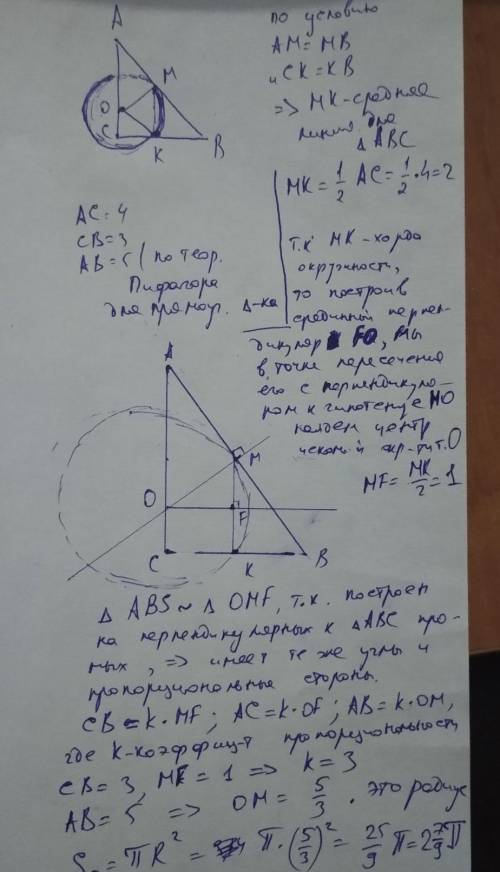 A
M
O
C
K
B
по условию
AM = MB
и CK = KB
=> MK - средняя
линия для
△ ABC
MK = 1/2 AC = 1/2 · 4 = 2
AC = 4
CB = 3
AB = 5 (по теор.
Пифагора
для прямоуг. △-ка
т.к MK - хорда
окружности,
то построив
срединный перпен-
дикуляр FO, мы
в точке пересечения
его с перпендикуля-
ром к гипотенузе MO
найдем центр
искомой окр-ти т.O
MF = MK/2 = 1
A
M
O
F
C
K
B
△ ABS ~ △ OMF, т.к. построен
на перпендикулярных к △ABC пря-
мых, => имеет те же углы и
пропорциональные стороны.
CB = k · MF; AC = k · OF; AB = k · OM,
где k - коэффиц-т пропорциональности
CB = 3, MF = 1 => k = 3
AB = 5 => OM = 5/3. это радиус
S = πR² = π · (5/3)² = 25/9 π = 2 7/9 π